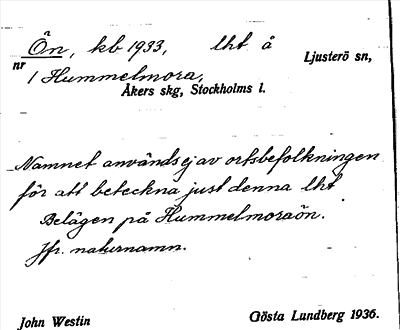 Ön, kb 1933, lht å Ljusterö sn,
nr 1 Hummelmora,
Åkers skg, Stockholms l.
Namnet används ej av ortsbefolkningen
för att beteckna just denna lht
Belägen på Hummelmoraön.
Jfr. naturnamn.
John Westin Gösta Lundberg 1936.